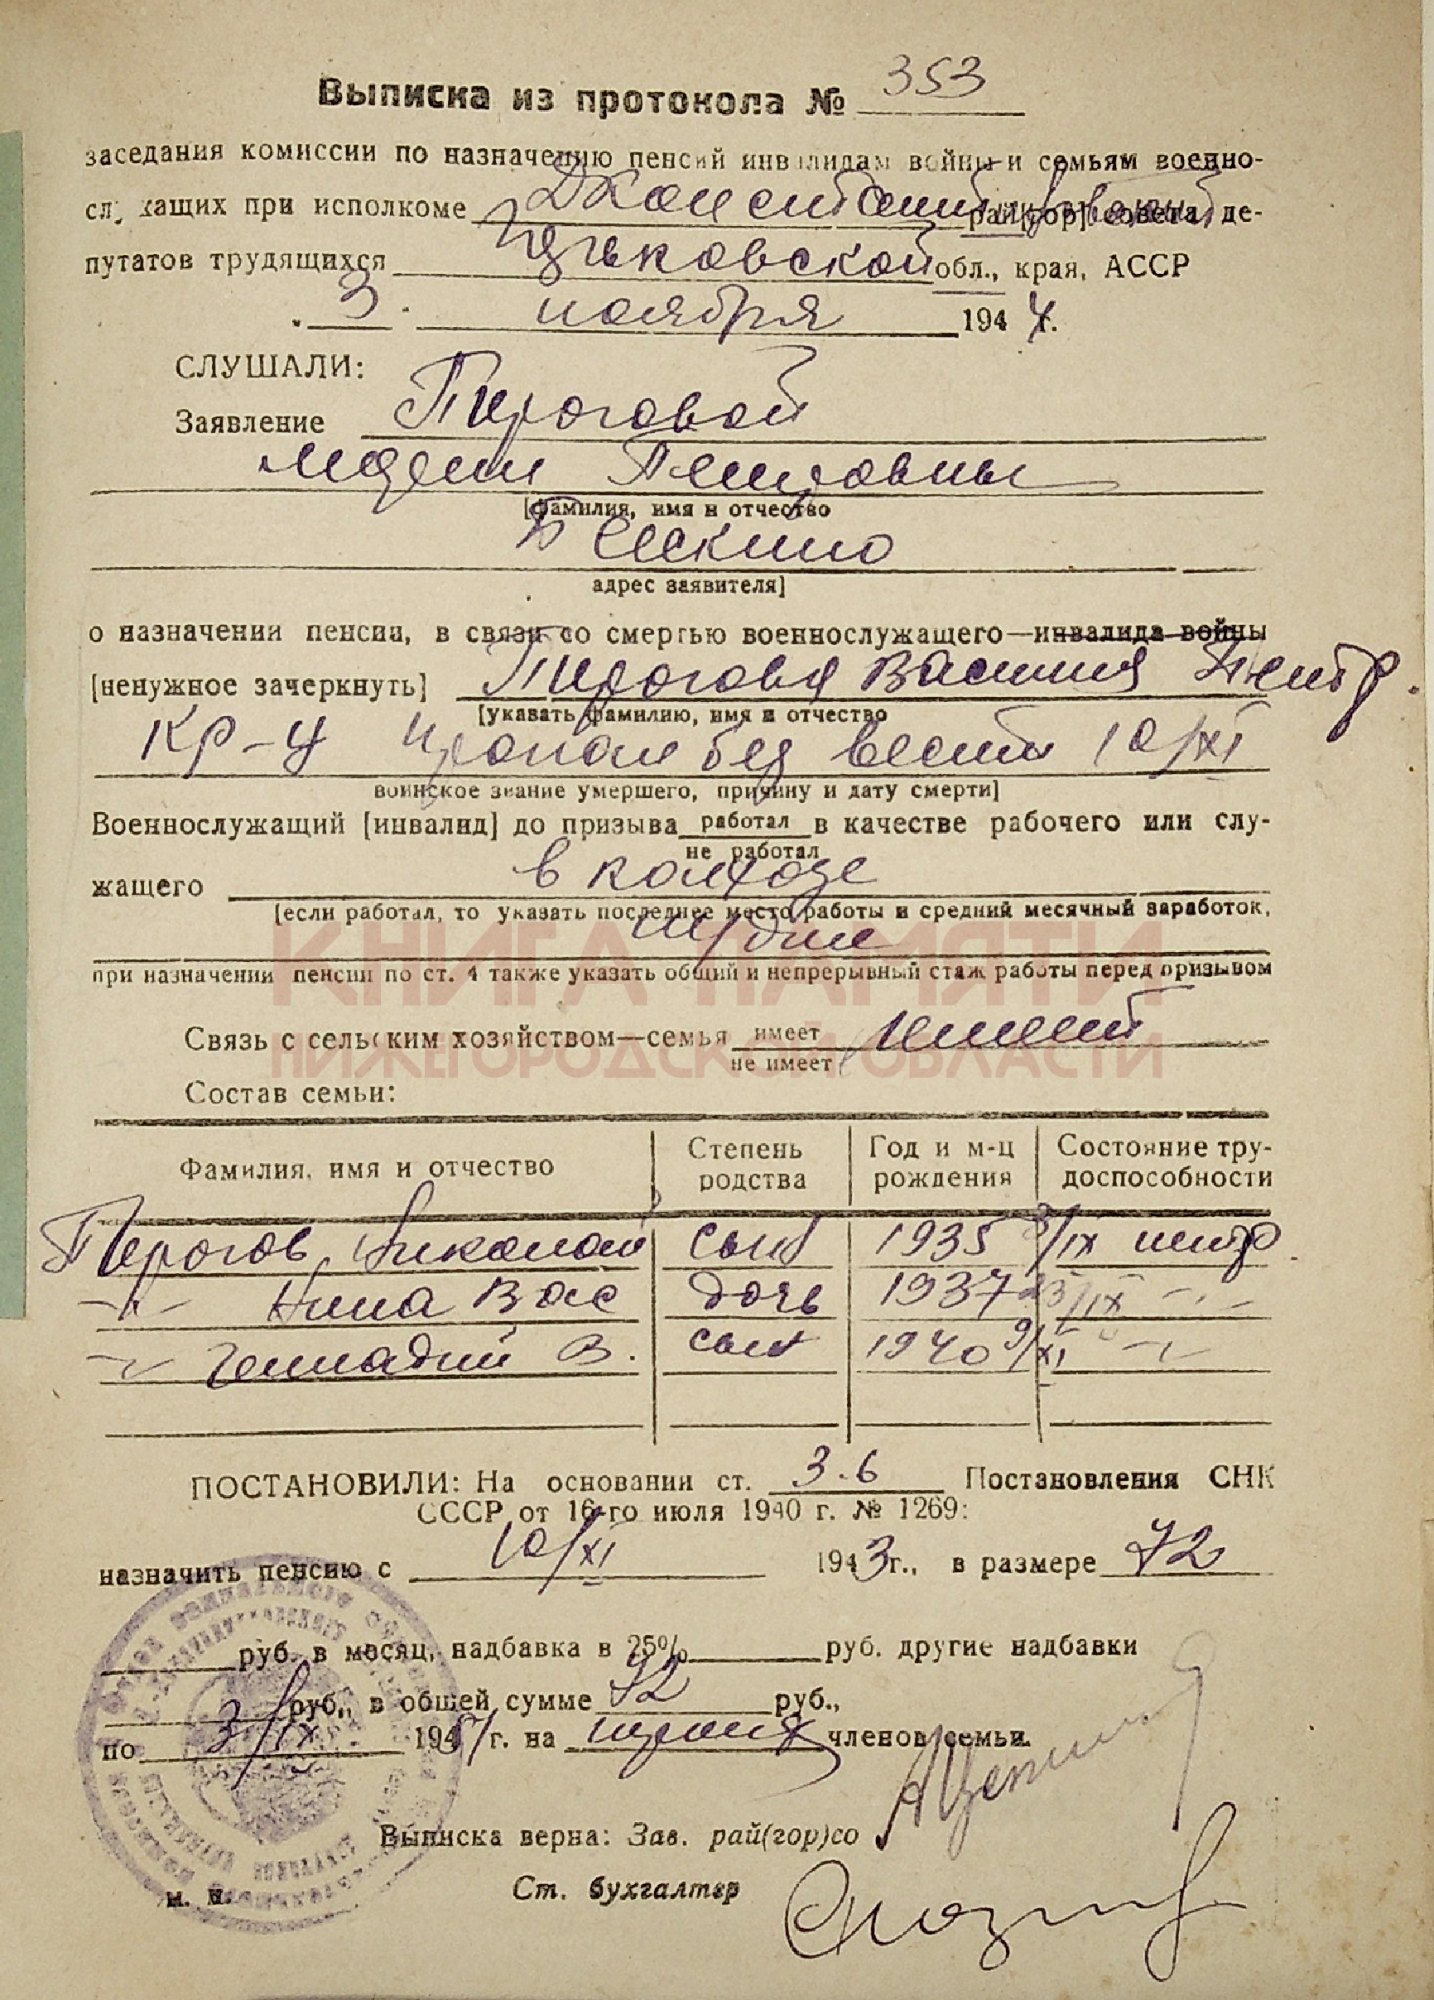 Выписка из протокола № 353
заседания комиссии по назначению пенсий инвалидам войны и семьям военно-
служащих при исполкоме рай[гор] совета, де-
путатов трудящихся Горьковской обл., края, АССР
3 ноября 1944 г.
СЛУШАЛИ:
Заявление Пироговой
Марии Петровны
[фамилия, имя и отчество
адрес заявителя]
о назначении пенсии, в связи со смертью военнослужащего—инвалида войны
[ненужное зачеркнуть] Пирогова Василия Петр.
[указать фамилию, имя и отчество
кр-ц пропал без вести 10/XI
воинское звание умершего, причину и дату смерти]
Военнослужащий [инвалид] до призыва работал в качестве рабочего или слу-
не работал
жащего в колхозе
[если работал, то указать последнее место работы и средний месячный заработок,
тр/дни
при назначении пенсии по ст. 4 также указать общий и непрерывный стаж работы перед призывом
КНИГА ПАМЯТИ
НИЖЕГОРОДСКОЙ ОБЛАСТИ
Связь с сельским хозяйством—семья имеет имеет
не имеет
Состав семьи:
Фамилия, имя и отчество Степень родства Год и м-ц рождения Состояние тру-доспособности
Пирогов Николай сын 1935 3/IX нетр.
-"- Нина Вас дочь 1937 23/IX -"-
-"- Геннадий В. сын 1940 9/XI -"-
ПОСТАНОВИЛИ: На основании ст. 3.6 Постановления СНК
СССР от 16-го июля 1940 г. № 1269:
назначить пенсию с 10/XI 1943 г., в размере 72
руб. в месяц, надбавка в 25% руб. другие надбавки
руб., в общей сумме 72 руб.,
по 3/IX 1951 г. на троих членов семьи.
Выписка верна: Зав. рай(гор)со
м. п. Ст. бухгалтер